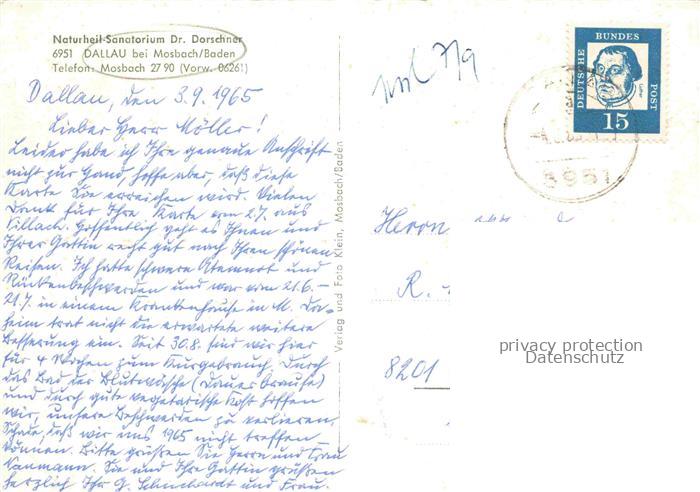 Naturheil-Sanatorium Dr. Dorschner
6951 DALLAU bei Mosbach/Baden
Telefon: Mosbach 27 90 (Vorw. 06261)
Dallau, den 3.9.1965
Lieber Herr Möller!
Leider habe ich Ihre genaue Anschrift
nicht zur Hand, hoffe aber, daß diese
Karte Sie erreichen wird. Vielen
Dank für Ihre Karte vom 2.7. aus
Villach. Hoffentlich geht es Ihnen und
Ihrer Gattin recht gut nach Ihren schönen
Reisen. Ich hatte schwere Atemnot und
Rückenbeschwerden und war vom 21.6.-
21.7. in einem Krankenhause in M. Da-
heim trat nicht die erwartete weitere
Besserung ein. Seit 30.8. sind wir hier
für 4 Wochen zum Kurgebrauch. Durch
das Bad der Blutwäsche (Dauerbrause)
und durch gute vegetarische Kost hoffen
wir, unsere Beschwerden zu verlieren.
Schade, daß wir uns 1965 nicht treffen
können. Bitte grüßen Sie Herrn und Frau
Sie und Ihre Gattin grüßen
herzlich Ihr G. und Frau.
Verlag und Foto Klein, Mosbach/Baden
7/9
DEUTSCHE
BUNDES
POST
15
6951
Herrn
R.
8201
privacy protection
Datenschutz